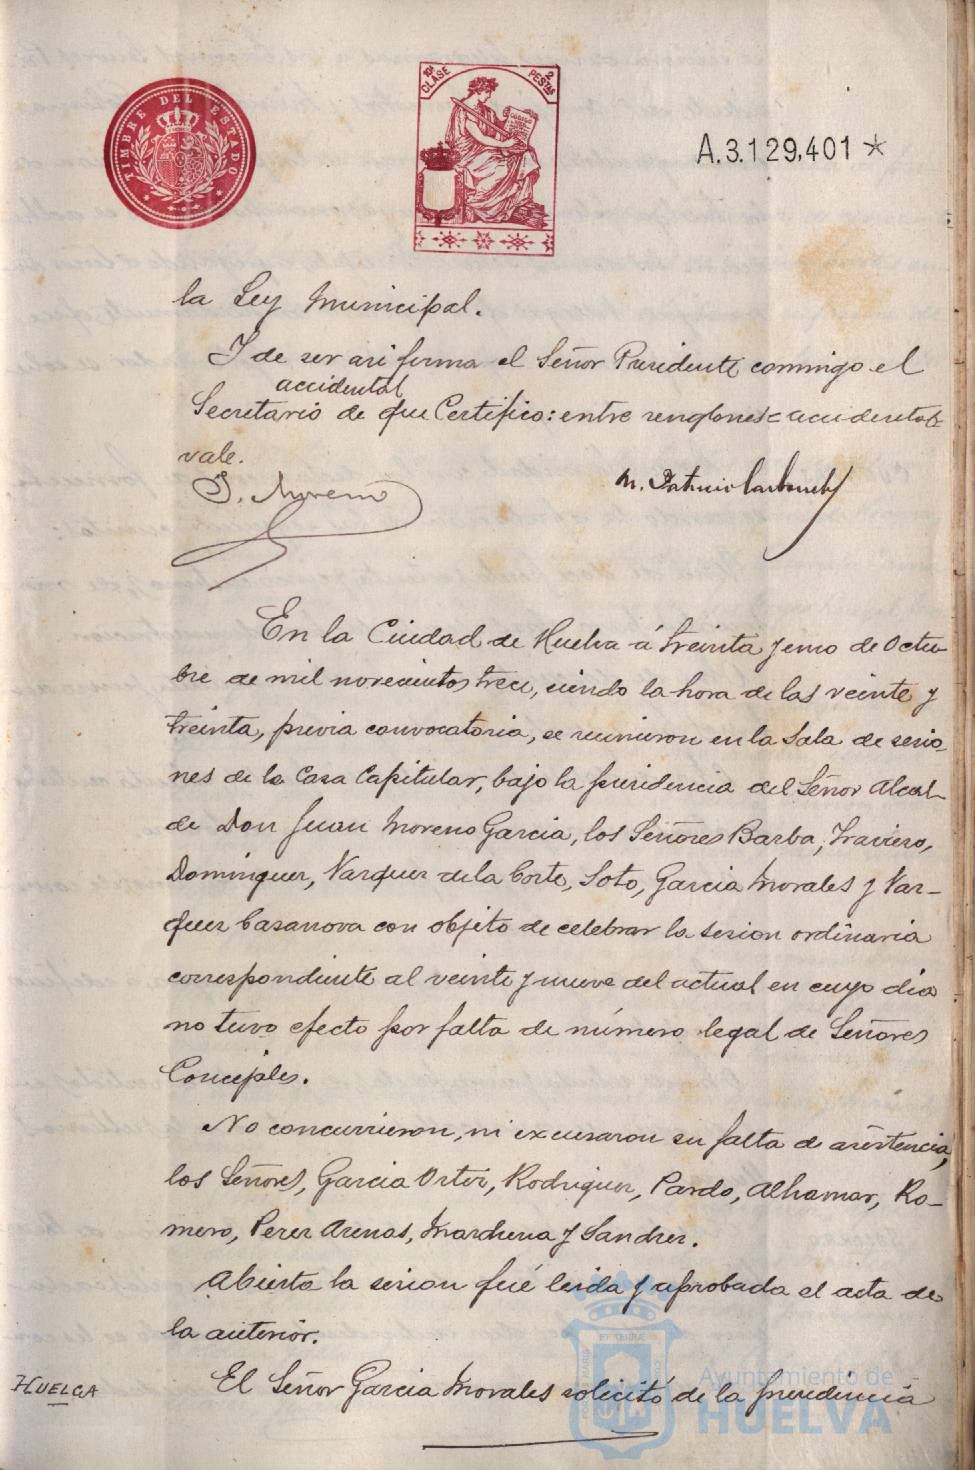 TIMBRE DEL ESTADO
10ª CLASE
2 PESTAS
A.3.129,401 *
la Ley Municipal.
Y de ser asi firma el Señor Presidente conmigo el
accidental
Secretario de que Certifico: entre renglones = accidental =
vale.
J. Moreno
M. Patricio Carbonell
En la Ciudad de Huelva á treinta y uno de Octu-
bre de mil novecientos trece, siendo la hora de las veinte y
treinta, previa convocatoria, se reunieron en la Sala de sesio-
nes de la Casa Capitular, bajo la presidencia del Señor Alcal-
de Don Juan Moreno Garcia, los Señores Barba, Traviero,
Dominguez, Vazquez de la Corte, Soto, Garcia Morales y Vaz-
quez Casanova con objeto de celebrar la sesion ordinaria
correspondiente al veinte y nueve del actual en cuyo dia
no tuvo efecto por falta de número legal de Señores
Concejales.
No concurrieron, ni excusaron su falta de asistencia,
los Señores, Garcia Ortiz, Rodriguez, Pardo, Alhamar, Ro-
mero, Perez Arenas, Marchena y Sandrez.
Abierta la sesion fué leida y aprobada el acta de
la anterior.
HUELGA
El Señor Garcia Morales solicitó de la presidencia
Ayuntamiento de
HUELVA